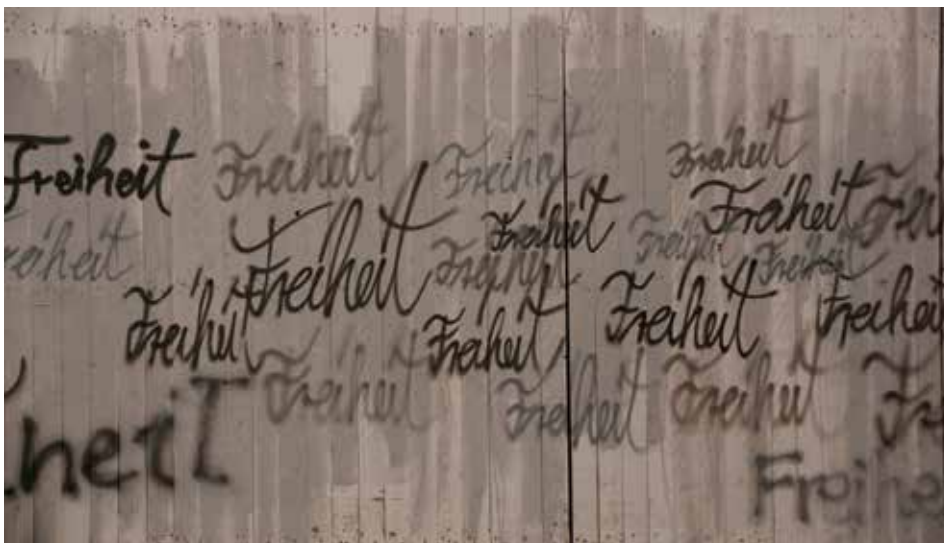 Freiheit Freiheit Freiheit Freiheit
Freiheit Freiheit Freiheit Frei
eiheit Freiheit Freiheit Freiheit Freiheit
Freiheit Freiheit Freiheit Freiheit
Freiheit Freiheit Freiheit Fr
heit Freihe